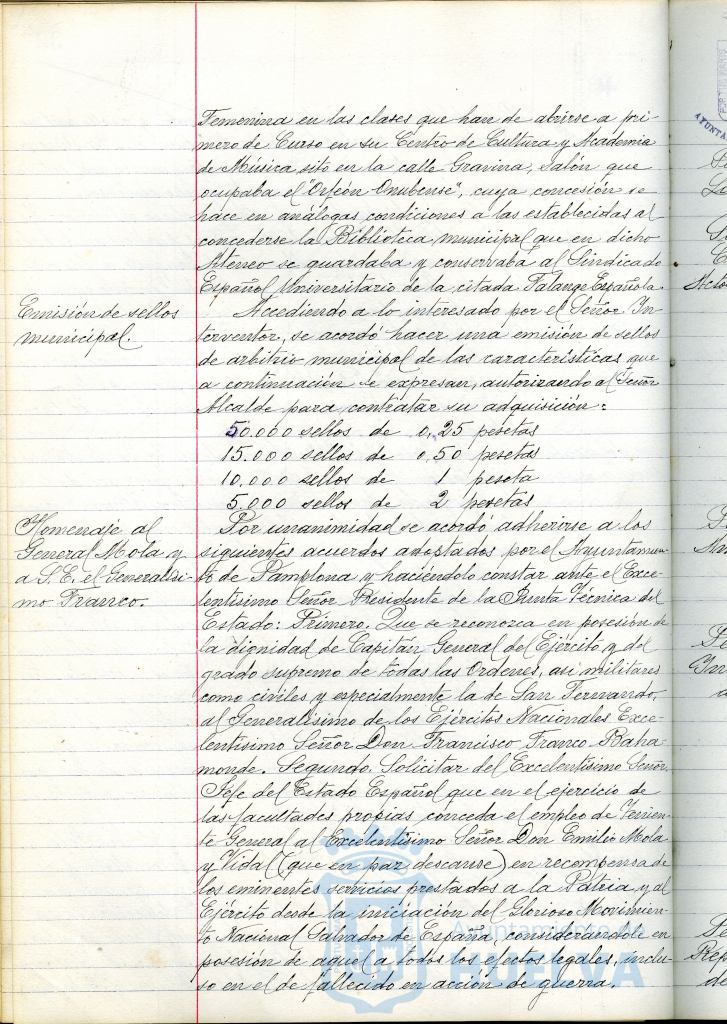 Femenina en las clases que han de abrirse a pri-
mero de Curso en su Centro de Cultura y Academia
de Música sito en la calle Gravina, salón que
ocupaba el "Orfeón Onubense", cuya concesión se
hace en análogas condiciones a las establecidas al
concederse la Biblioteca municipal que en dicho
Ateneo se guardaba y conservaba al Sindicado
Español Universitario de la citada Falange Española.
Emisión de sellos
municipal.
Accediendo a lo interesado por el Señor In-
terventor, se acordó hacer una emisión de sellos
de arbitrio municipal de las características que
a continuación se expresan, autorizando al Señor
Alcalde para contratar su adquisición:
50.000 sellos de 0,25 pesetas
15.000 sellos de 0,50 pesetas
10.000 sellos de 1 peseta
5.000 sellos de 2 pesetas
Homenaje al
General Mola y
a S.E. el Generalísi-
mo Franco.
Por unanimidad se acordó adherirse a los
siguientes acuerdos adoptados por el Ayuntamien-
to de Pamplona y haciéndolo constar ante el Exce-
lentísimo Señor Presidente de la Junta Técnica del
Estado: Primero. Que se reconozca en posesión de
la dignidad de Capitán General del Ejército y del
grado supremo de todas las Ordenes, asi militares
como civiles y especialmente la de San Fernando,
al Generalísimo de los Ejércitos Nacionales Exce-
lentísimo Señor Don Francisco Franco Baha-
monde. Segundo. Solicitar del Excelentísimo Señor
Jefe del Estado Español que en el ejercicio de
las facultades propias conceda el empleo de Tenien-
te General al Excelentísimo Señor Don Emilio Mola
y Vidal (que en paz descanse) en recompensa de
los eminentes servicios prestados a la Patria y al
Ejército desde la iniciación del Glorioso Movimien-
to Nacional Salvador de España, considerandole en
posesión de aquel a todos los efectos legales, inclu-
so en el de fallecido en acción de guerra.
Ayuntamiento de
HUELVA